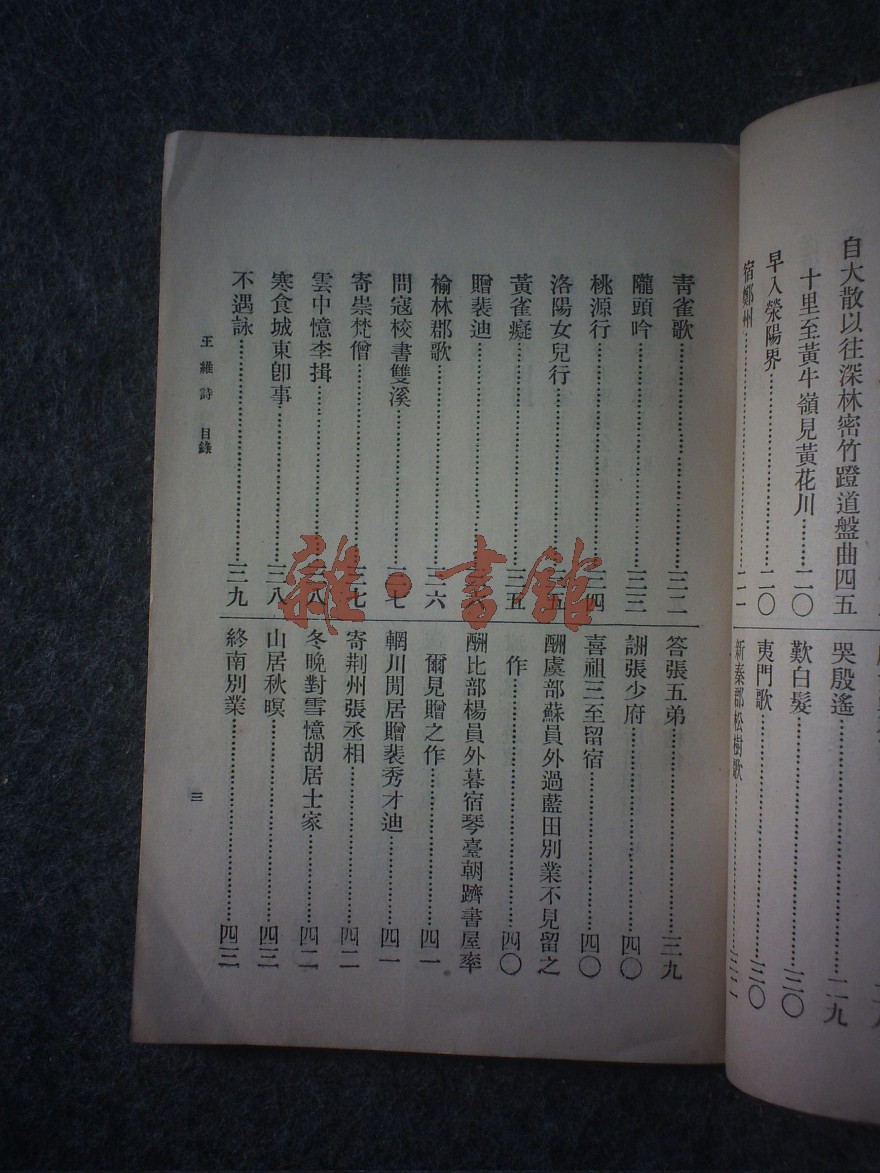 自大散以往深林密竹蹬道盤曲四五
十里至黃牛嶺見黃花川………二〇
早入滎陽界………二〇
宿鄭州………二一
哭殷遙………二九
歎白髮………三〇
夷門歌………三〇
新秦郡松樹歌………三二
青雀歌………三二
隴頭吟………三三
桃源行………三四
洛陽女兒行………三五
黃雀癡………三五
贈裴迪………
榆林郡歌………三六
問寇校書雙溪………三七
寄崇梵僧………三七
雲中憶李揖………三八
寒食城東即事………三八
不遇詠………三九
答張五弟………三九
詶張少府………四〇
喜祖三至留宿………四〇
酬虞部蘇員外過藍田別業不見留之
作………四〇
酬比部楊員外暮宿琴臺朝躋書屋率
爾見贈之作………四一
輞川閒居贈裴秀才迪………四一
寄荆州張丞相………四二
冬晚對雪憶胡居士家………四二
山居秋暝………四三
終南別業………四三
王維詩 目錄
三
雜·書館